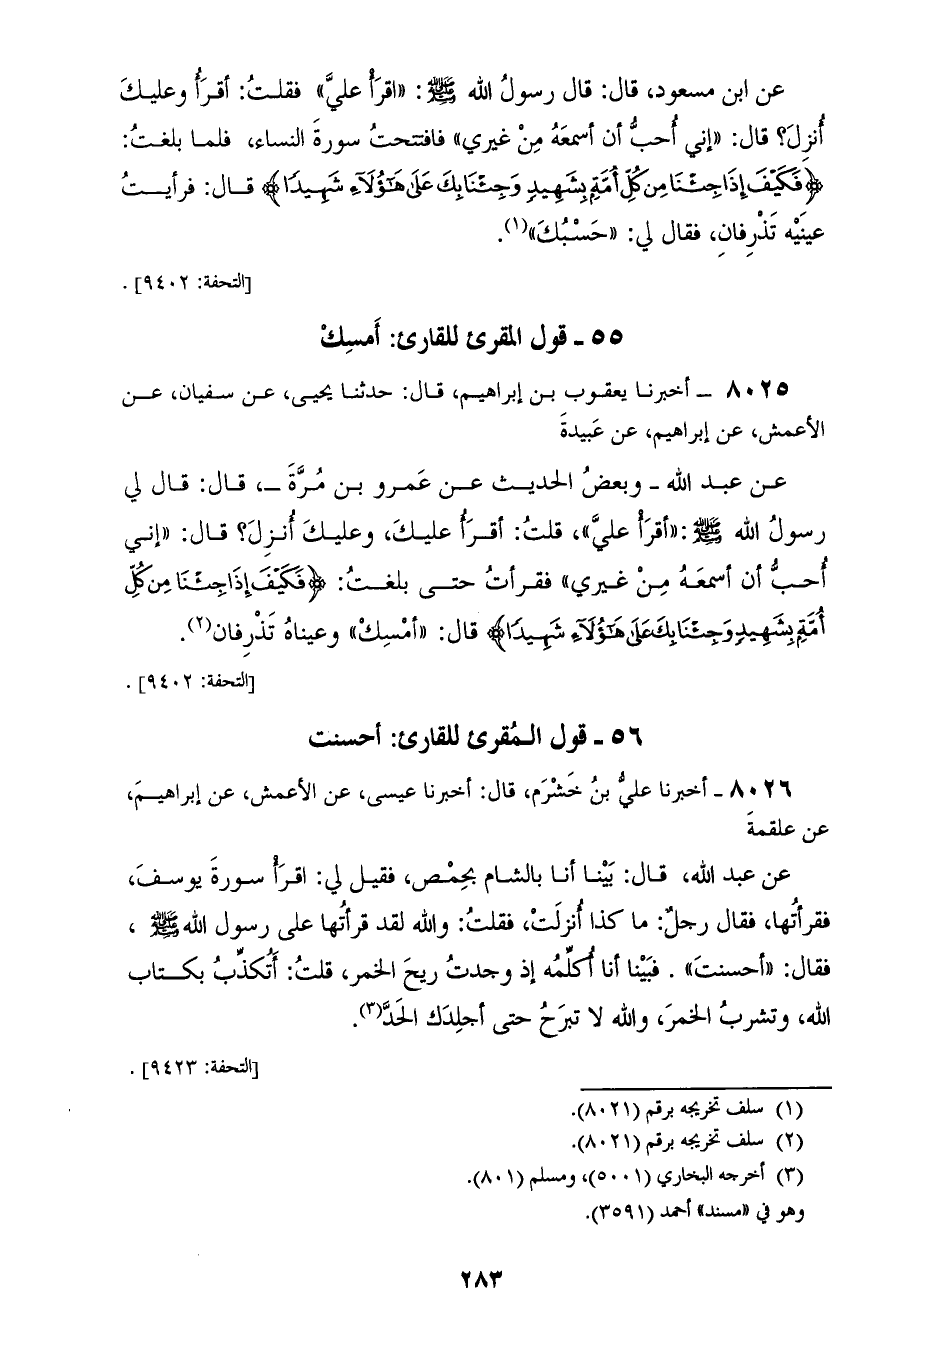 عن ابن مسعود، قال: قال رسولُ الله ﷺ: «اقرَأْ عليَّ» فقلتُ: أقرَأُ وعليكَ
أُنزِلَ؟ قال: «إني أُحبُّ أن أسمعَهُ مِنْ غيري» فافتتحتُ سورةَ النساء، فلما بلغتُ:
﴿فَكَيْفَ إِذَا جِئْنَا مِن كُلِّ أُمَّةٍ بِشَهِيدٍ وَجِئْنَا بِكَ عَلَىٰ هَٰٓؤُلَآءِ شَهِيدًا﴾ قال: فرأيتُ
عينَيْه تَذْرِفانِ، فقال لي: «حَسْبُكَ»(١).
[التحفة: ٩٤٠٢] .
٥٥ ـ قول المقرئ للقارئ: أَمسِكْ
٨٠٢٥ ـ أخبرنا يعقوب بن إبراهيم، قال: حدثنا يحيى، عن سفيان، عن
الأعمش، عن إبراهيم، عن عَبيدةَ
عن عبد الله ـ وبعضُ الحديث عن عَمرو بن مُرَّةَ ـ، قال: قال لي
رسولُ الله ﷺ :«أقرَأْ عليَّ»، قلتُ: أقرَأُ عليكَ، وعليكَ أُنزِلَ؟ قال: «إني
أُحبُّ أن أسمعَهُ مِنْ غيري» فقرأتُ حتى بلغتُ: ﴿فَكَيْفَ إِذَا جِئْنَا مِن كُلِّ
أُمَّةٍ بِشَهِيدٍ وَجِئْنَا بِكَ عَلَىٰ هَٰٓؤُلَآءِ شَهِيدًا﴾ قال: «أمْسِكْ» وعيناهُ تَذْرِفان(٢).
[التحفة: ٩٤٠٢] .
٥٦ ـ قول المُقرئ للقارئ: أحسنت
٨٠٢٦ ـ أخبرنا عليُّ بنُ خَشْرَم، قال: أخبرنا عيسى، عن الأعمش، عن إبراهيمَ،
عن علقمةَ
عن عبد الله، قال: بَيْنا أنا بالشام بحِمْص، فقيل لي: اقرَأْ سورةَ يوسفَ،
فقرأتُها، فقال رجلٌ: ما كذا أُنزلَتْ، فقلتُ: والله لقد قرأتُها على رسول الله ﷺ ،
فقال: «أحسنتَ» . فبَيْنا أنا أُكلِّمُه إذ وجدتُ ريحَ الخمر، قلتُ: أَتُكذِّبُ بكتاب
الله، وتشربُ الخمرَ، والله لا تبرَحُ حتى أجلِدَك الحَدَّ(٣).
[التحفة: ٩٤٢٣] .
(١) سلف تخريجه برقم (٨٠٢١).
(٢) سلف تخريجه برقم (٨٠٢١).
(٣) أخرجه البخاري (٥٠٠١)، ومسلم (٨٠١).
وهو في «مسند» أحمد (٣٥٩١).
٢٨٣